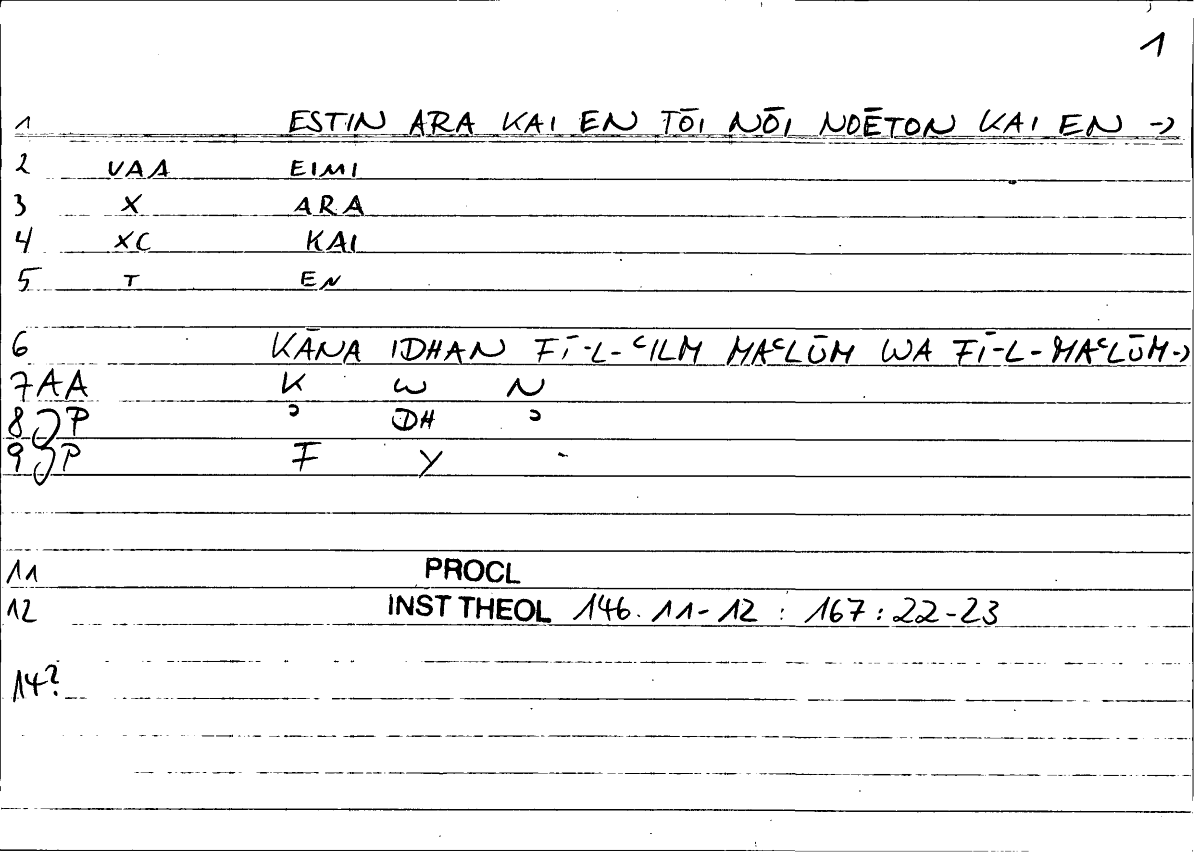 1
1 ESTIN ARA KAI EN TŌI NŌI NOĒTON KAI EN →
2 VAA EIMI
3 X ARA
4 XC KAI
5 T EN
6 KĀNA IDHAN FĪ-L-ᶜILM MAᶜLŪM WA FĪ-L-MAᶜLŪM→
7AA K W N
8JP ʾ DH ʾ
9JP F Y -
11 PROCL
12 INST THEOL 146.11-12 : 167:22-23
14?